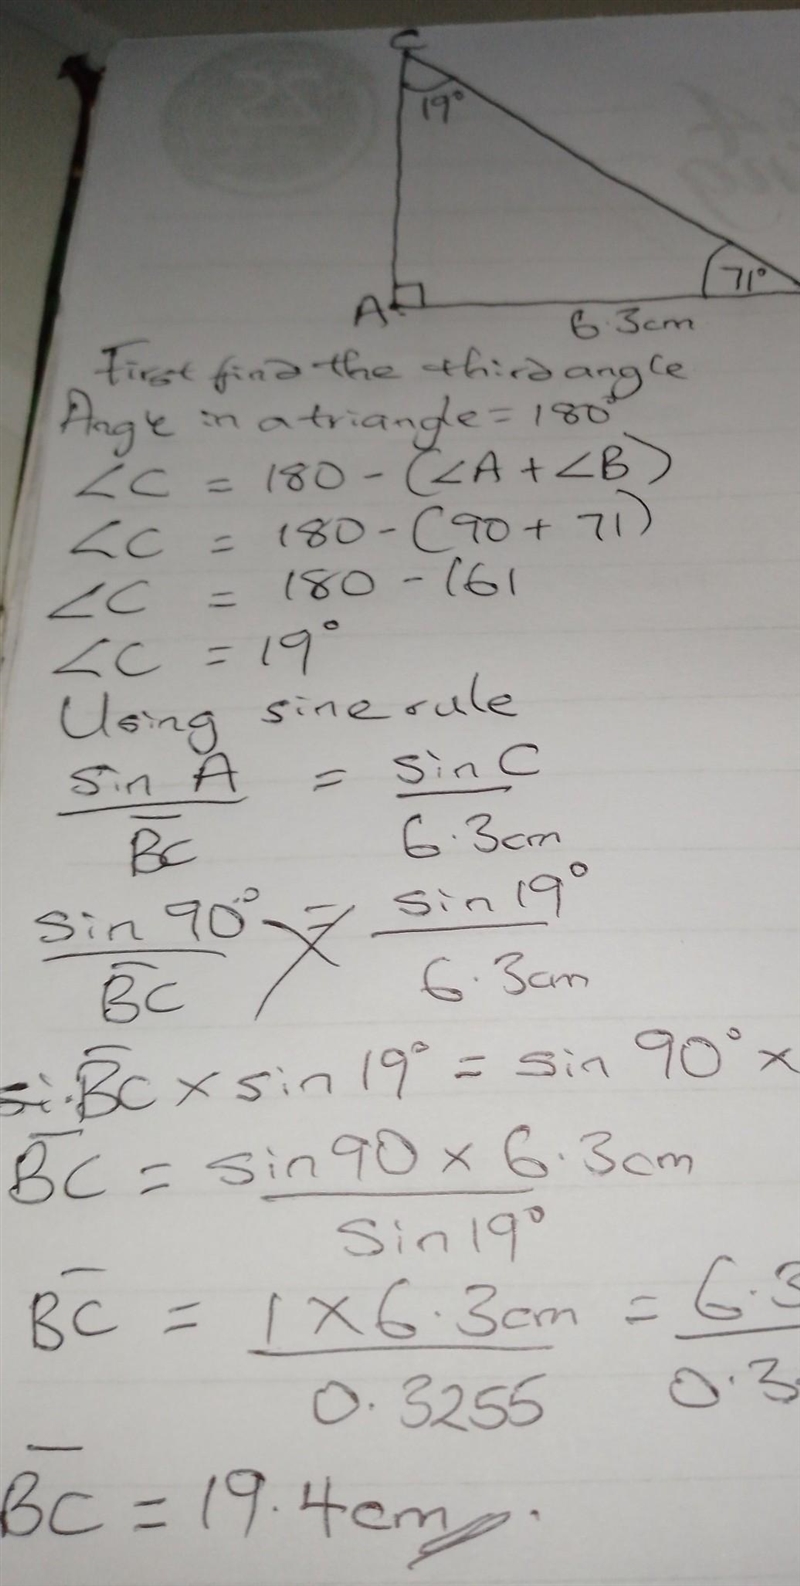 C
19°
71°
A
6.3cm
First find the third angle
Angle in a triangle = 180°
∠C = 180 - (∠A + ∠B)
∠C = 180 - (90 + 71)
∠C = 180 - 161
∠C = 19°
Using sine rule
sin A / B̅C̅ = sin C / 6.3cm
sin 90° / B̅C̅ = sin 19° / 6.3cm
B̅C̅ × sin 19° = sin 90° ×
B̅C̅ = sin 90 × 6.3cm / sin 19°
B̅C̅ = 1 × 6.3cm / 0.3255 = 6.3 / 0.3
B̅C̅ = 19.4cm